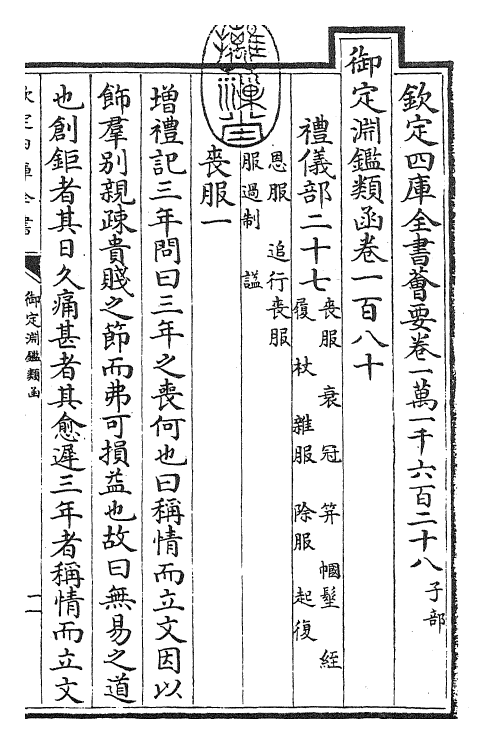 欽定四庫全書薈要卷一萬一千六百二十八 子部
御定淵鑑類函卷一百八十
禮儀部二十七 喪服 衰 冠 笄 幗髽 絰
屨 杖 雜服 除服 起復
恩服 追行喪服
服過制 謚
喪服一
增禮記三年問曰三年之喪何也曰稱情而立文因以
飾羣別親疎貴賤之節而弗可損益也故曰無易之道
也創鉅者其日久痛甚者其愈遲三年者稱情而立文
欽定四庫全書
御定淵鑑類函
一